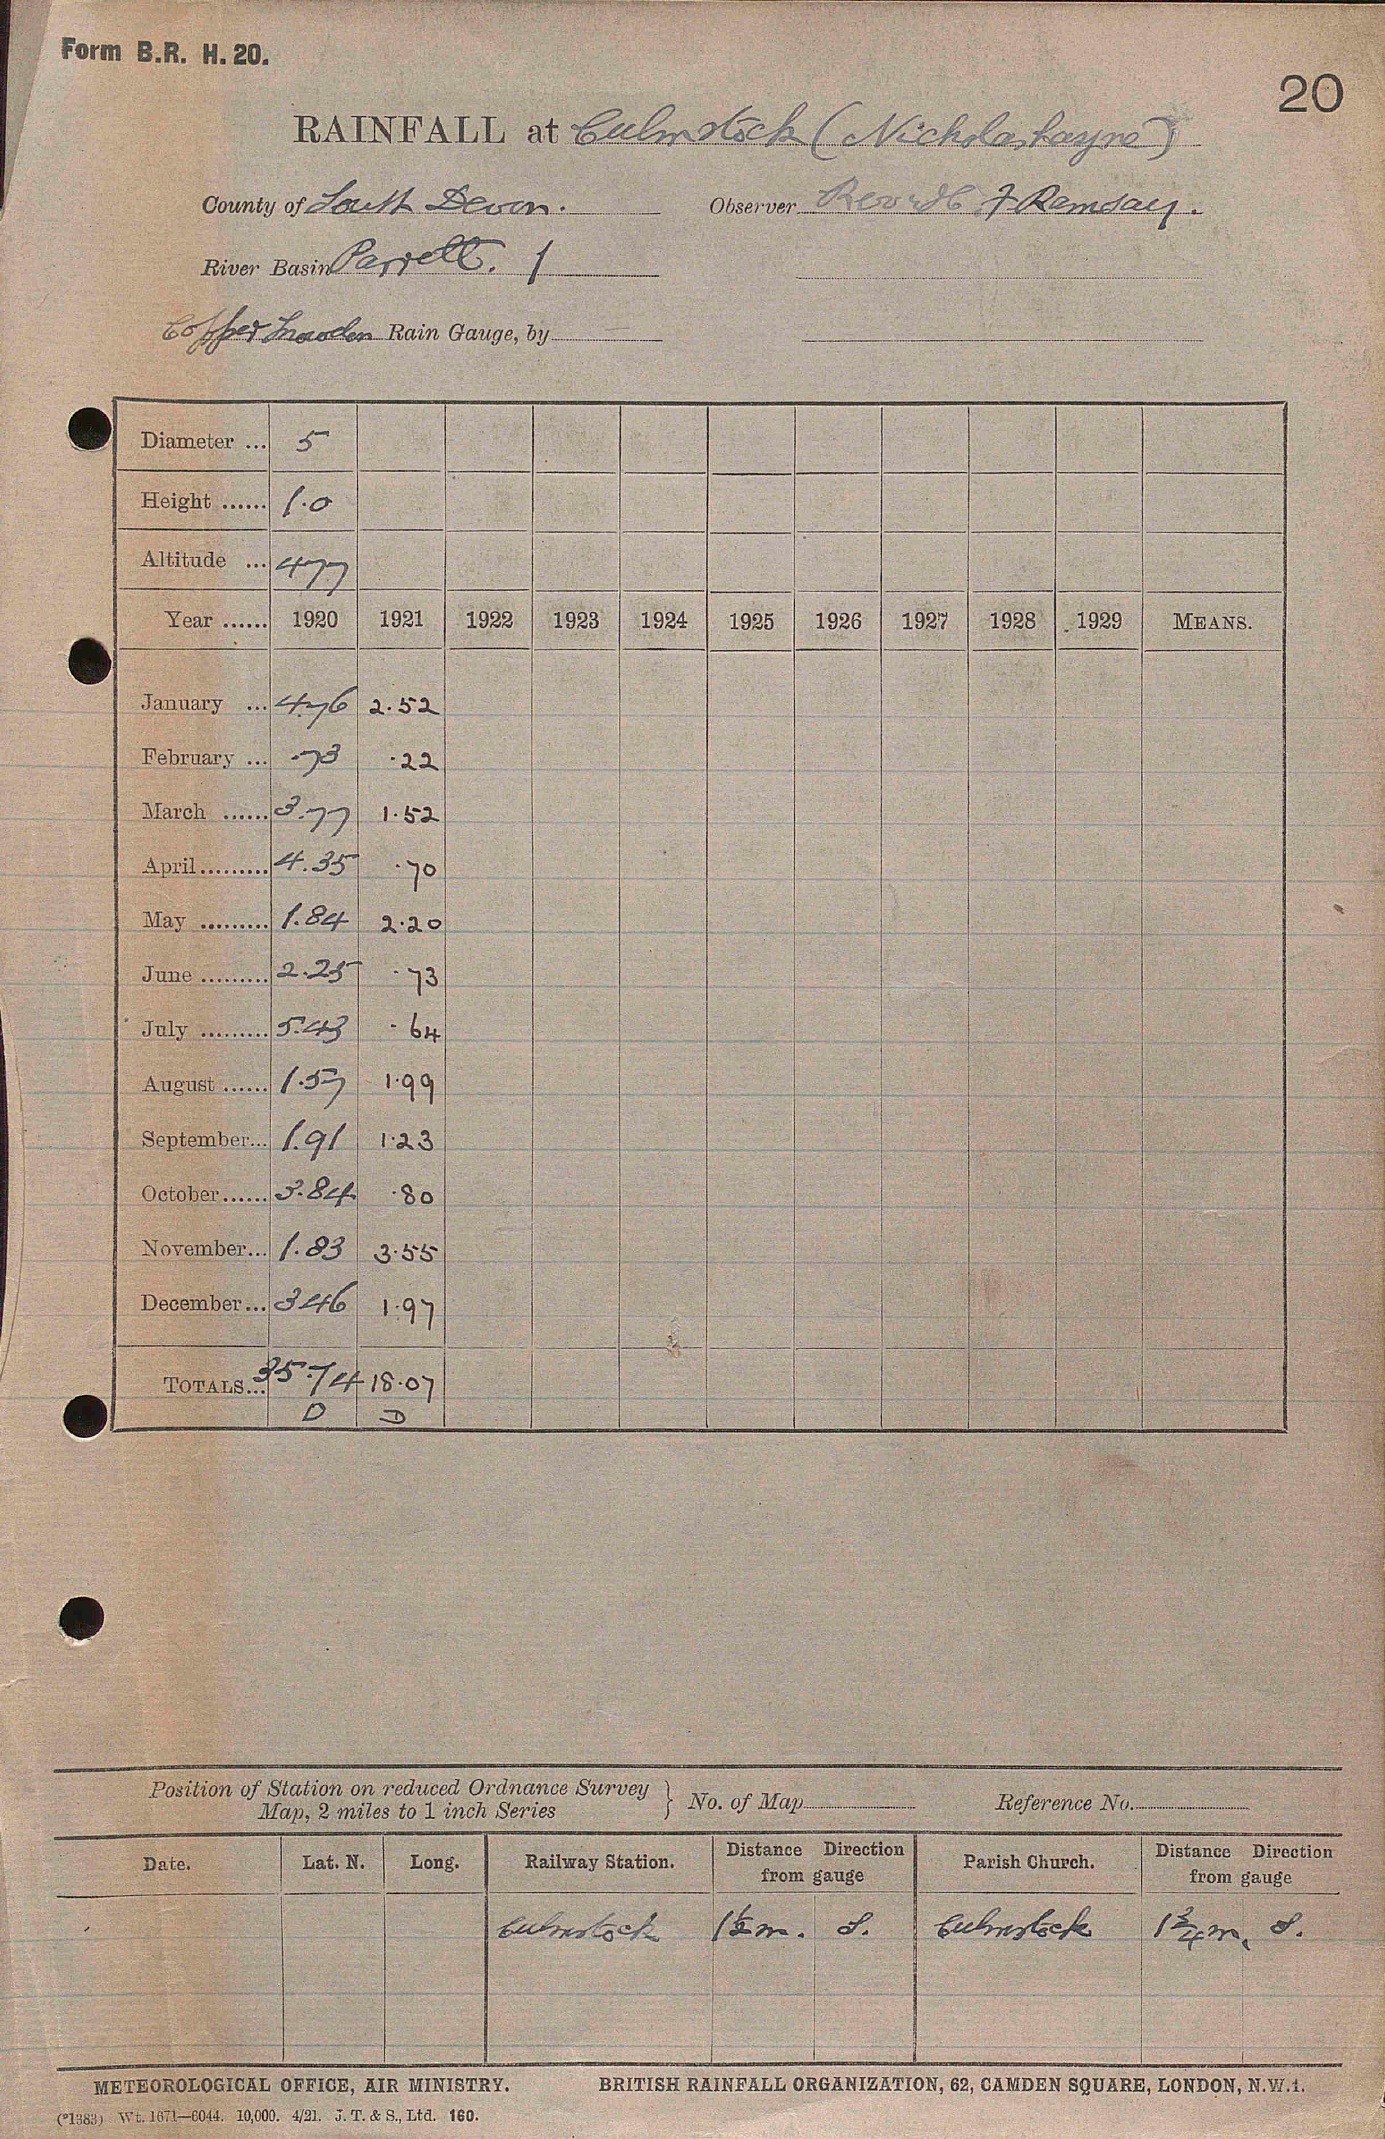 Form B.R. H. 20.
20
RAINFALL at Culmstock (Nicholashayne)
County of South Devon. Observer Revd H F Ramsay.
River Basin Parrett. 1
Copper Snowdon Rain Gauge, by
Diameter ... 5
Height ...... 1.0
Altitude ... 477
Year ...... 1920 1921 1922 1923 1924 1925 1926 1927 1928 1929 MEANS.
January ... 4.76 2.52
February ... .73 .22
March ...... 3.77 1.52
April ......... 4.35 .70
May ......... 1.84 2.20
June ......... 2.25 .73
July ......... 5.43 .64
August ...... 1.57 1.99
September... 1.91 1.23
October...... 3.84 .80
November... 1.83 3.55
December... 3.46 1.97
TOTALS... 35.74 18.07
D D
Position of Station on reduced Ordnance Survey
Map, 2 miles to 1 inch Series } No. of Map Reference No.
Date. Lat. N. Long. Railway Station. Distance Direction from gauge Parish Church. Distance Direction from gauge
Culmstock 1½ m. S. Culmstock 1¾ m. S.
METEOROLOGICAL OFFICE, AIR MINISTRY. BRITISH RAINFALL ORGANIZATION, 62, CAMDEN SQUARE, LONDON, N.W.1.
(*1383) Wt. 1671—6044. 10,000. 4/21. J. T. & S., Ltd. 160.